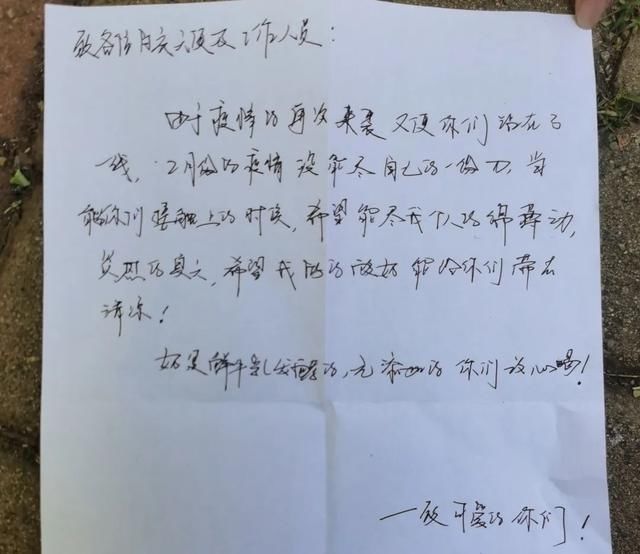 致各位白衣天使及工作人员：
由于疫情的再次来袭 又使你们站在了
线，2月份的疫情 没能尽自己的一份力，当
能你们接触上的时候，希望能尽我个人的绵薄动，
炎热的夏天，希望我的酸奶能给你们带在
清凉！
奶是鲜牛乳发酵的，无添加的 你们放心喝！
一致可爱的你们！